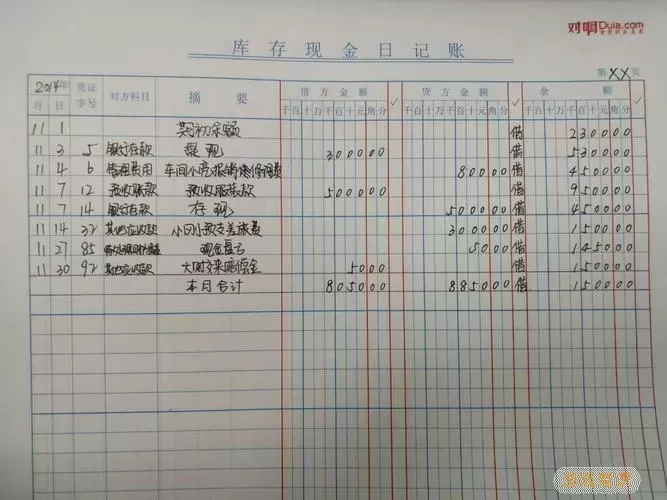 对啊Duia.com
库存现金日记账
第XX页
2014年 凭证字号 对方科目 摘要 借方金额 ✓ 贷方金额 ✓ 余额 ✓
月 日 千百十万千百十元角分 千百十万千百十元角分 千百十万千百十元角分
11 1 期初余额 借 230000
11 3 5 银行存款 提现 300000 借 530000
11 4 6 管理费用 车间小亮报销修理费 80000 借 450000
11 7 12 预收账款 预收服装款 500000 借 950000
11 7 14 银行存款 存现 500000 借 450000
11 14 32 其他应收款 小四小敏支差旅费 300000 借 150000
11 27 85 现金盘亏 5000 借 145000
11 30 92 其他应收款 大财交来赔偿金 5000 借 150000
本月合计 805000 885000 借 150000